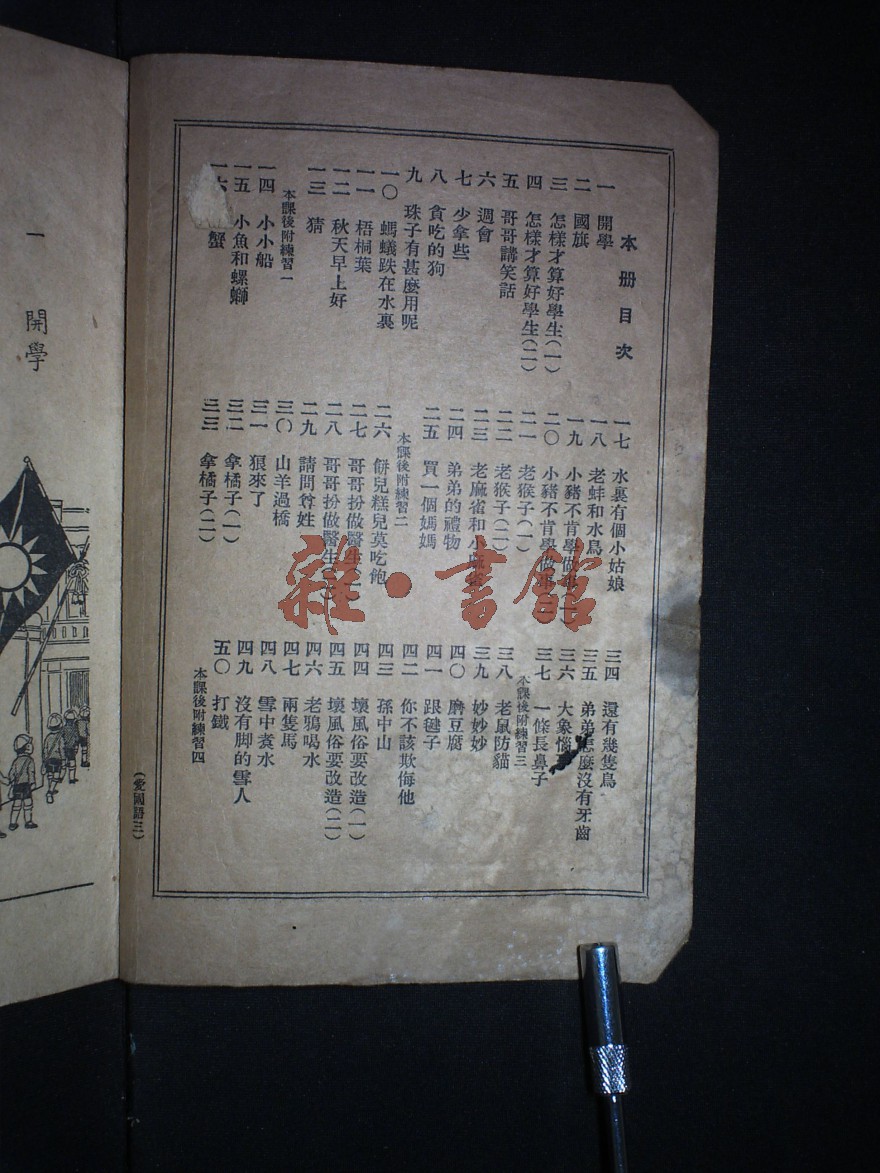 本册目次
一 開學
二 國旗
三 怎樣才算好學生(一)
四 怎樣才算好學生(二)
五 哥哥講笑話
六 週會
七 少拿些
八 貪吃的狗
九 珠子有甚麼用呢
一〇 螞蟻跌在水裏
一一 梧桐葉
一二 秋天早上好
一三 猜
本課後附練習一
一四 小小船
一五 小魚和螺螄
一六 蟹
一七 水裏有個小姑娘
一八 老蚌和水鳥
一九 小豬不肯學做事(一)
二〇 小豬不肯學做事(二)
二一 老猴子(一)
二二 老猴子(二)
二三 老麻雀和小麻雀
二四 弟弟的禮物
二五 買一個媽媽
本課後附練習二
二六 餅兒糕兒莫吃飽
二七 哥哥扮做醫生(一)
二八 哥哥扮做醫生(二)
二九 請問尊姓
三〇 山羊過橋
三一 狼來了
三二 拿橘子(一)
三三 拿橘子(二)
三四 還有幾隻鳥
三五 弟弟怎麼沒有牙齒
三六 大象惱
三七 一條長鼻子
本課後附練習三
三八 老鼠防貓
三九 妙妙妙
四〇 磨豆腐
四一 踢毽子
四二 你不該欺侮他
四三 孫中山
四四 壞風俗要改造(一)
四五 壞風俗要改造(二)
四六 老鴉喝水
四七 兩隻馬
四八 雪中煑水
四九 沒有脚的雪人
五〇 打鐵
本課後附練習四
(愛國語三)
一 開學
雜·書館